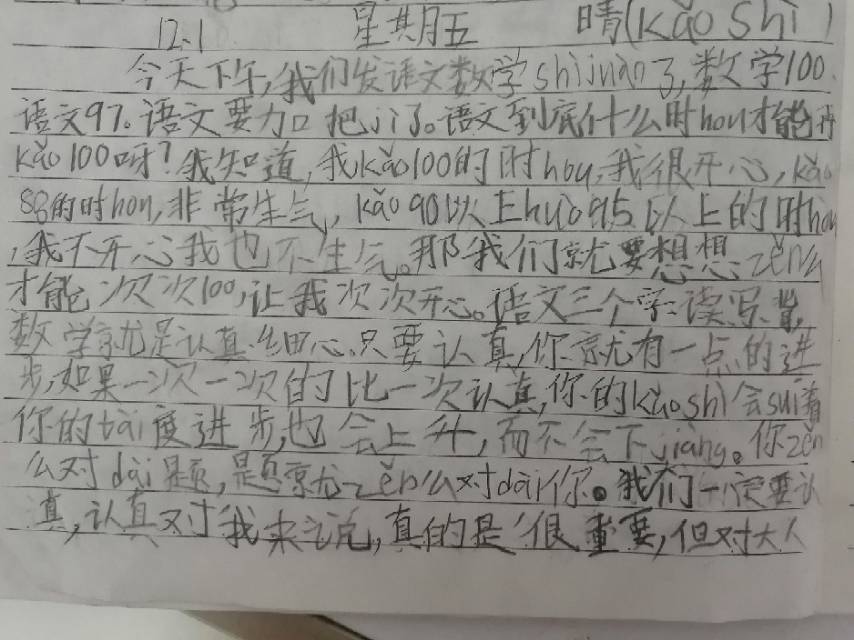 12.1 星期五 晴(kǎo shì)
今天下午,我们发语文数学shì juàn了,数学100.
语文97。语文要加把ji了。语文到底什么时hou才能再
kǎo 100呀?我知道,我kǎo100的时hou,我很开心,kǎo
88的时hou,非常生气,kǎo 90以上huò95以上的时hou
,我不开心我也不生气。那我们就要想想zěn么
才能次次100,让我次次开心。语文三个字:读写背,
数学就是认真细心。只要认真,你就有一点的进
步,如果一次一次的比一次认真,你的kǎo shì会suí着
你的tài度进步,也会上升,而不会下jiàng。你zěn
么对dài题,题就zěn么对dài你。我们一定要认
真,认真对我来说,真的是很重要,但对大人